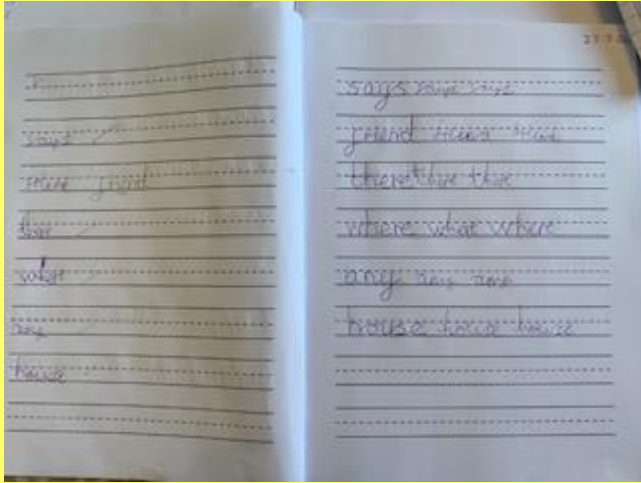 says
friend
there
where
any
house
says says says
friend friend friend
there there there
where where where
any any any
house house house